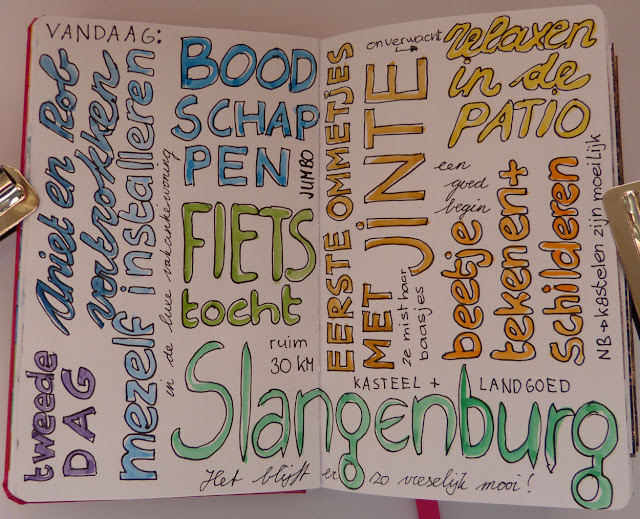 VANDAAG:
tweede
DAG
Aniet en Rob
vertrokken
mezelf installeren
in de luxe vakantiewoning
BOOD
SCHAP
PEN
JUMBO
FIETS
tocht
ruim
30 KM
EERSTE OMMETJES
MET JINTE
onverwacht
ze mist haar
baasjes
relaxen
in de
PATIO
een
goed
begin
beetje
tekenen+
schilderen
NB→kastelen zijn moeilijk
KASTEEL + LANDGOED
Slangenburg
Het blijft er zo vreselijk mooi!